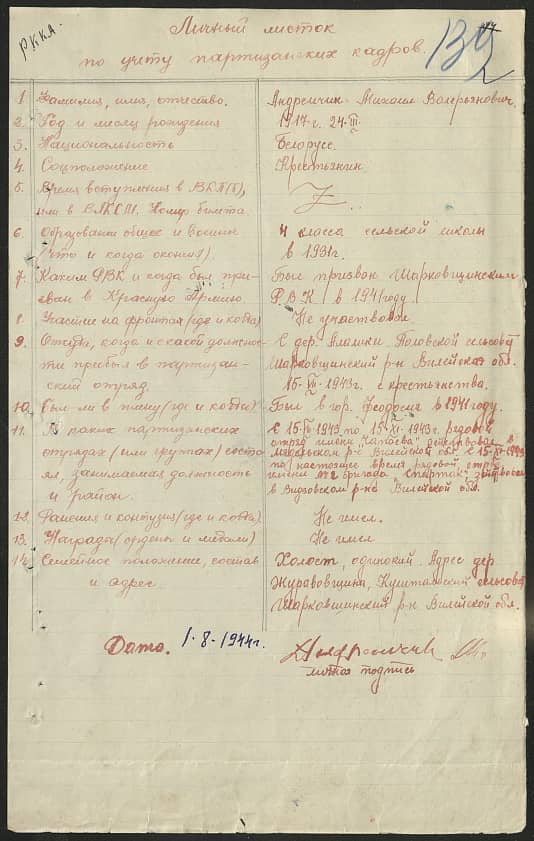 Р.К.К.А.
Личный листок
по учету партизанских кадров.
139
1. Фамилия, имя, отчество. Андрейчик Михаил Валерьянович.
2. Год и месяц рождения 1917 г. 24-III.
3. Национальность Белорусс.
4. Соцположение Крестьянин
5. Время вступления в ВКП(б), Z
или в ВЛКСМ. Номер билета.
6. Образование общее и военн 4 класса сельской школы
(что и когда окончил). в 1931г.
7. Каким РВК и когда был при- Был призван Шарковщинским
зван в Красную Армию Р.В.К в 1941 году
8. Участие на фронтах (где и когда) Не участвовал
9. Откуда, когда и с какой должнос- С дер. Поповской сельсовет
ти прибыл в партизан- Шарковщинский р-н Вилейской обл.
ский отряд. 15-VI-1943г. с крестьянства.
10. Был-ли в плену (где и когда) Был в гор. Феодосие в 1941 году.
11. В каких партизанских С 15-VI 1943 по 15-XI-1943г. рядовой
отрядах (или группах) состо- отряд имени "Чапаева" действовал в
ял, занимаемая должность р-не Вилейской обл. С 15-XI-1943
и район. по настоящее время рядовой, отряд
имени №2 бригада "Спартак"
в Видзовском р-не Вилейской обл.
12. Ранения и контузия (где и когда) Не имел.
13. Награда (ордены и медали) Не имел
14. Семейное положение, состав Холост, одинокий. Адрес дер
и адрес. Журавовщина, сельсовет
Шарковщинский р-н Вилейской обл.
Дата. 1-8-1944г. Андрейчик
личная подпись